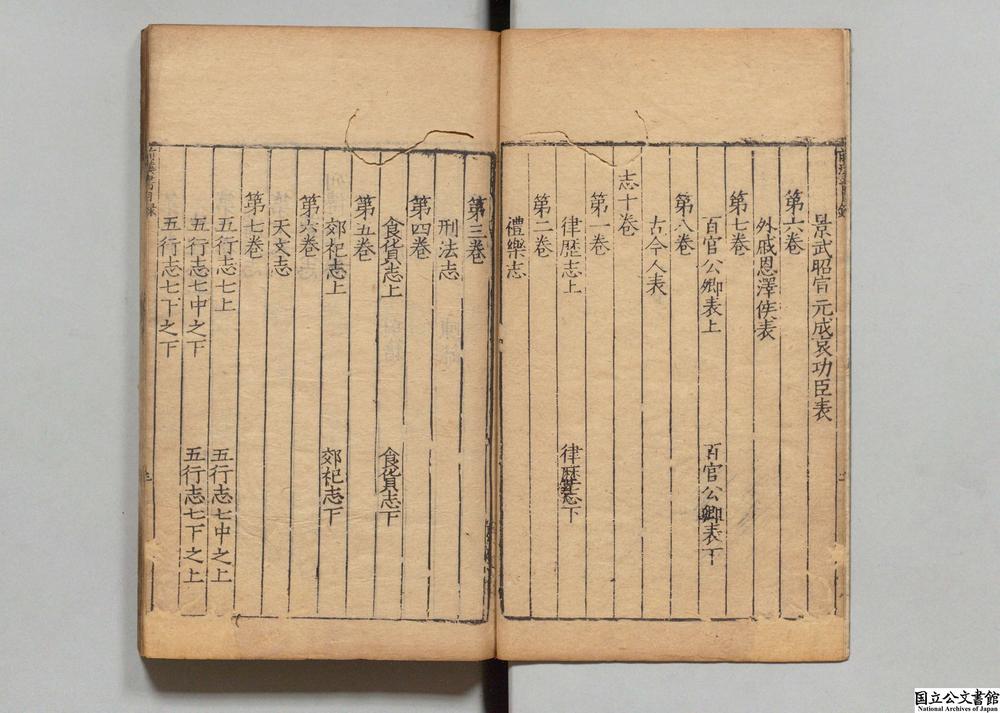 景武昭宣元成哀功臣表
第六卷
外戚恩澤侯表
第七卷
百官公卿表上 百官公卿表下
第八卷
古今人表
志十卷
第一卷
律歷志上 律歷志下
第二卷
禮樂志
第三卷
刑法志
第四卷
食貨志上 食貨志下
第五卷
郊祀志上 郊祀志下
第六卷
天文志
第七卷
五行志七上 五行志七中之上
五行志七中之下 五行志七下之上
五行志七下之下
国立公文書館
National Archives of Japan